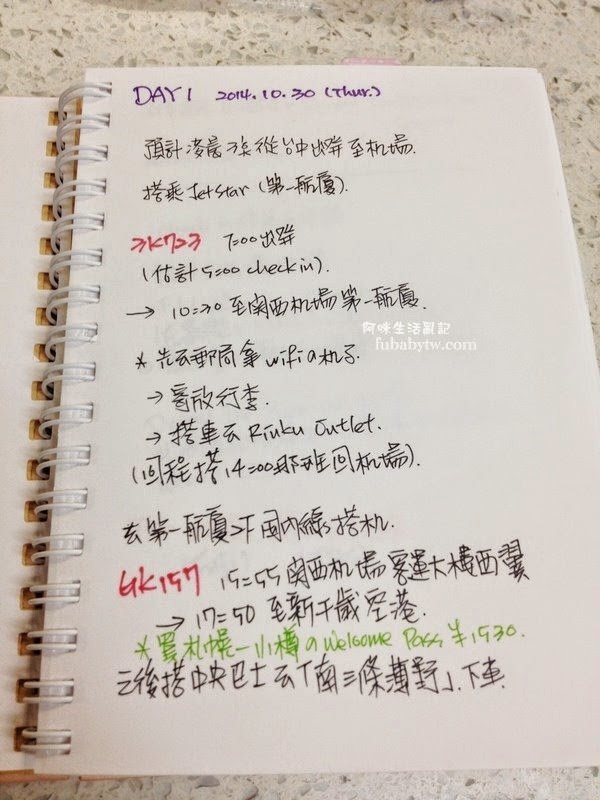 DAY 1 2014.10.30 (Thur.)
預計凌晨3點從台中出發至机場.
搭乘Jetstar (第一航廈).
3K723 7:00出發
(估計5:00 check in).
→ 10:30至関西机場第一航廈.
阿咪生活置記
fubabytw.com
* 先去郵局拿wifi的机子
→ 寄放行李.
→ 搭車去Rinku Outlet.
(回程搭14:00那班回机場).
去第一航廈2F国內線搭机.
GK157 15:55関西机場客運大樓西翼
→ 17:50至新千歲空港.
* 買札幌-小樽のWelcome Pass ¥1530.
之後搭中央巴士去「南三條薄野」下車.